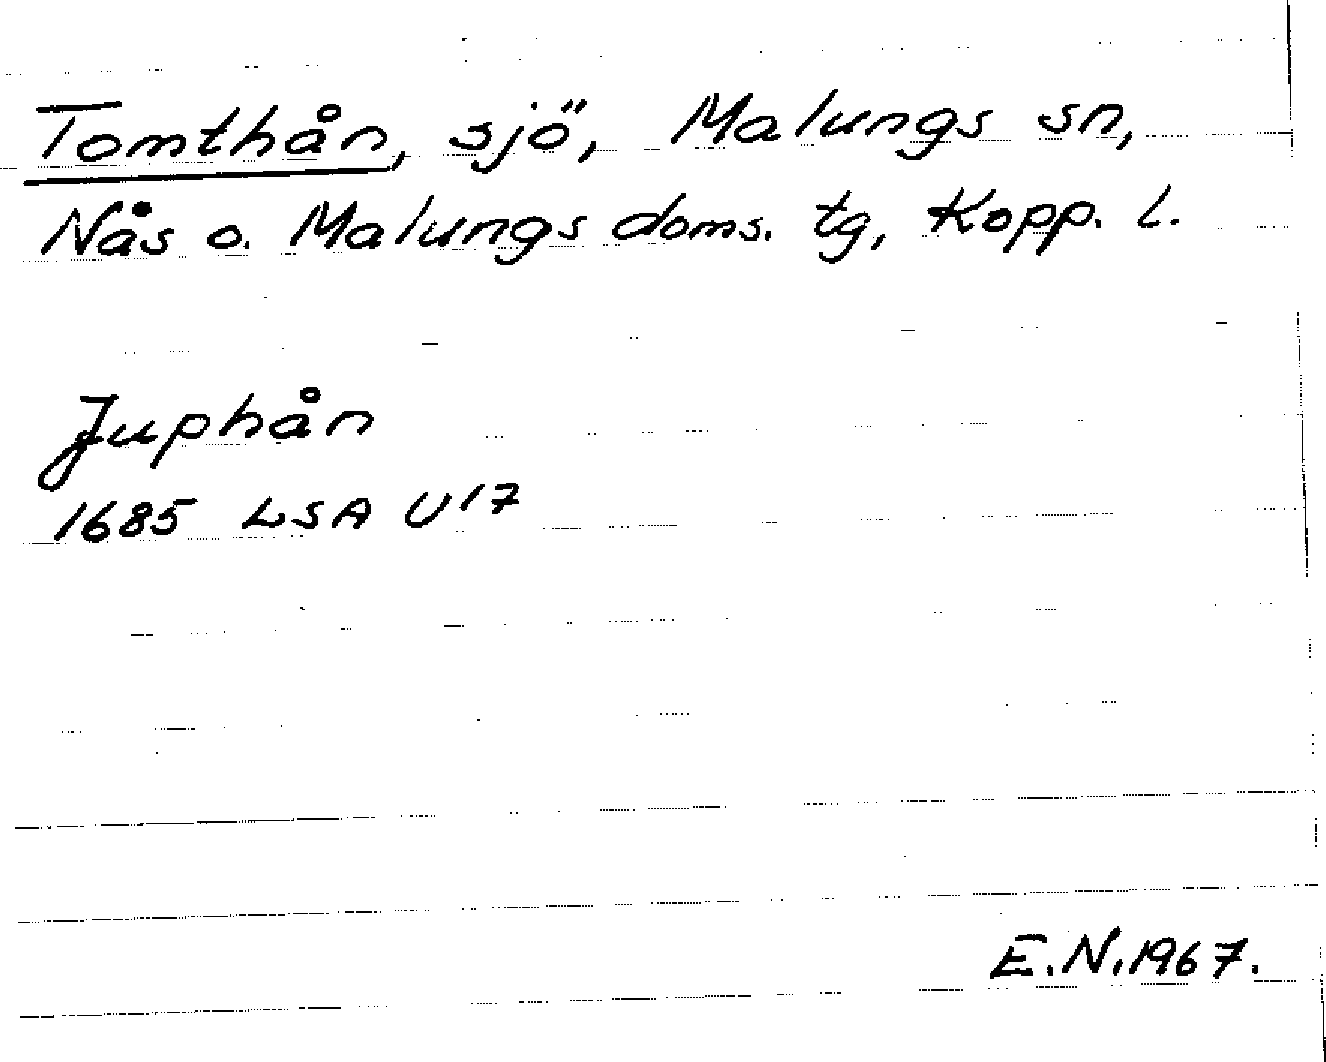 Tomthån, sjö, Malungs sn,
Nås o. Malungs doms. tg, Kopp. l.
Juphån
1685 LSA U17
E.N.1967.